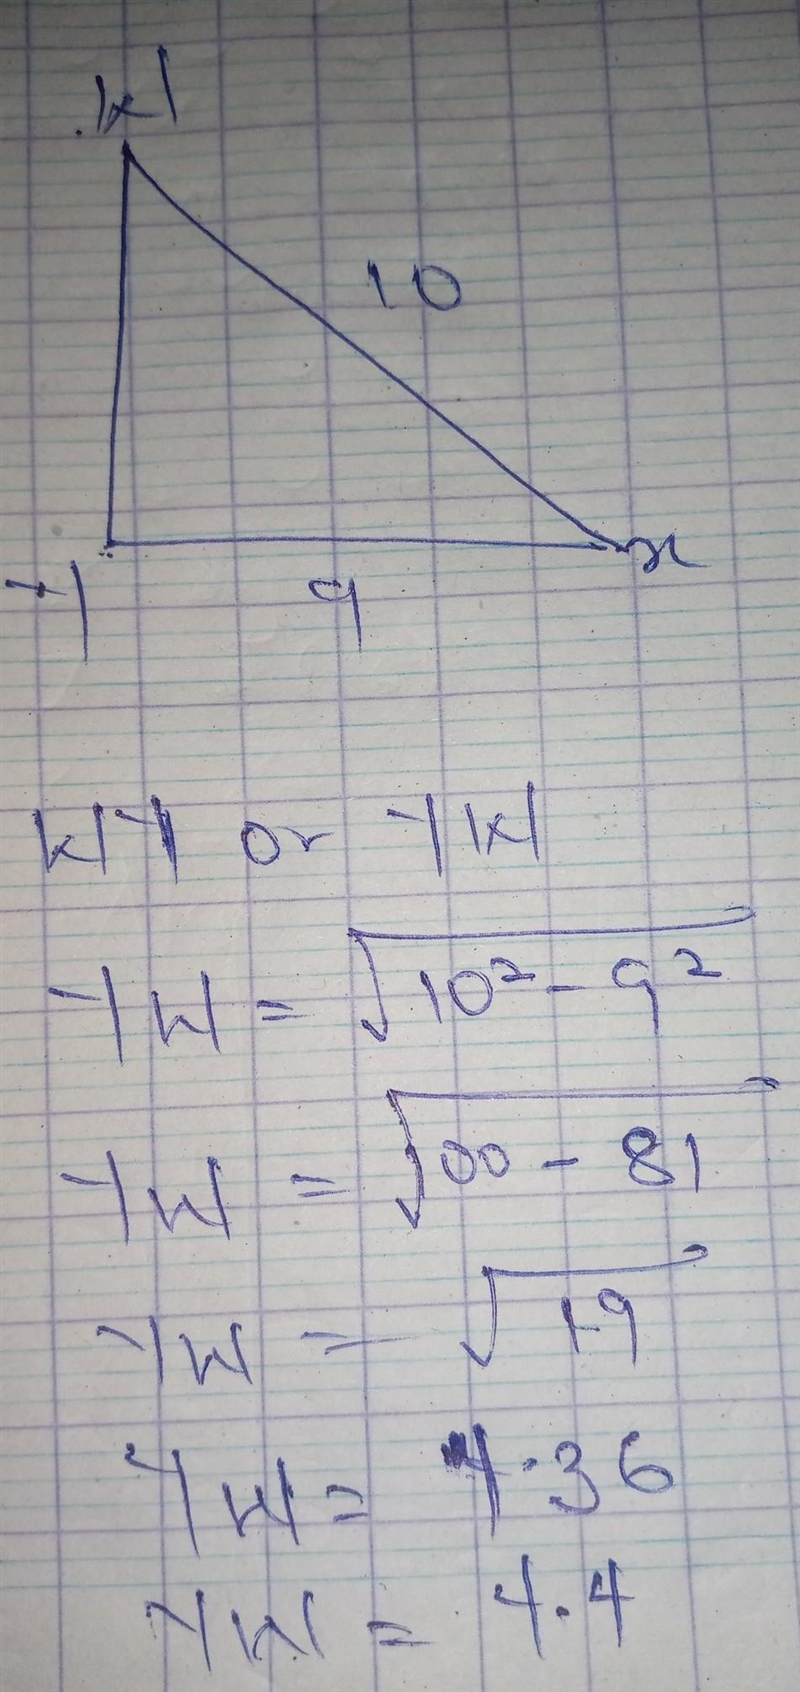 W
10
Y
9
x
WY or YW
YW = √10² - 9²
YW = √100 - 81
YW = √19
YW = 4.36
YW = 4.4